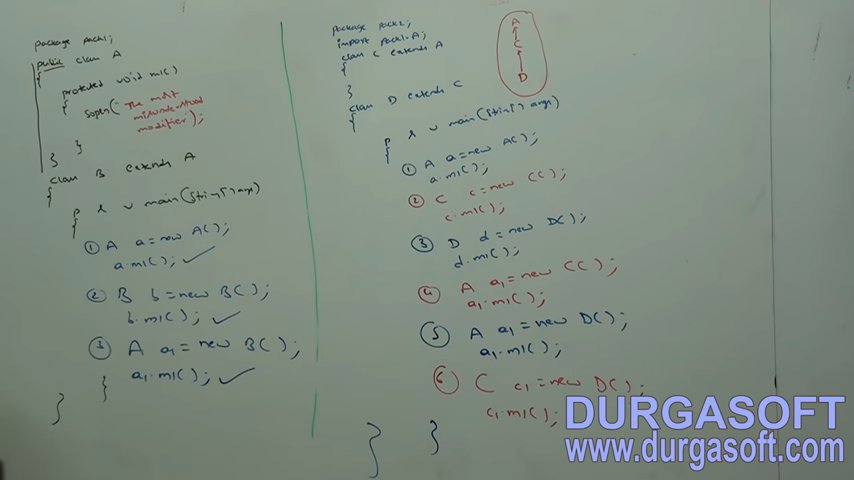 package pack1;
public class A
{
protected void m1()
{
Sopln("The most
misunderstood
modifier");
}
}
class B extends A
{
p s v main(String[] args)
{
① A a=new A();
a.m1(); ✓
② B b=new B();
b.m1(); ✓
③ A a1=new B();
a1.m1(); ✓
}
}
package pack2;
import pack1.A;
class C extends A
{
}
class D extends C
{
p s v main(String[] args)
{
① A a=new A();
a.m1();
② C c=new C();
c.m1();
③ D d=new D();
d.m1();
④ A a1=new C();
a1.m1();
⑤ A a1=new D();
a1.m1();
⑥ C c1=new D();
c1.m1();
}
}
A
C
D
DURGASOFT
www.durgasoft.com